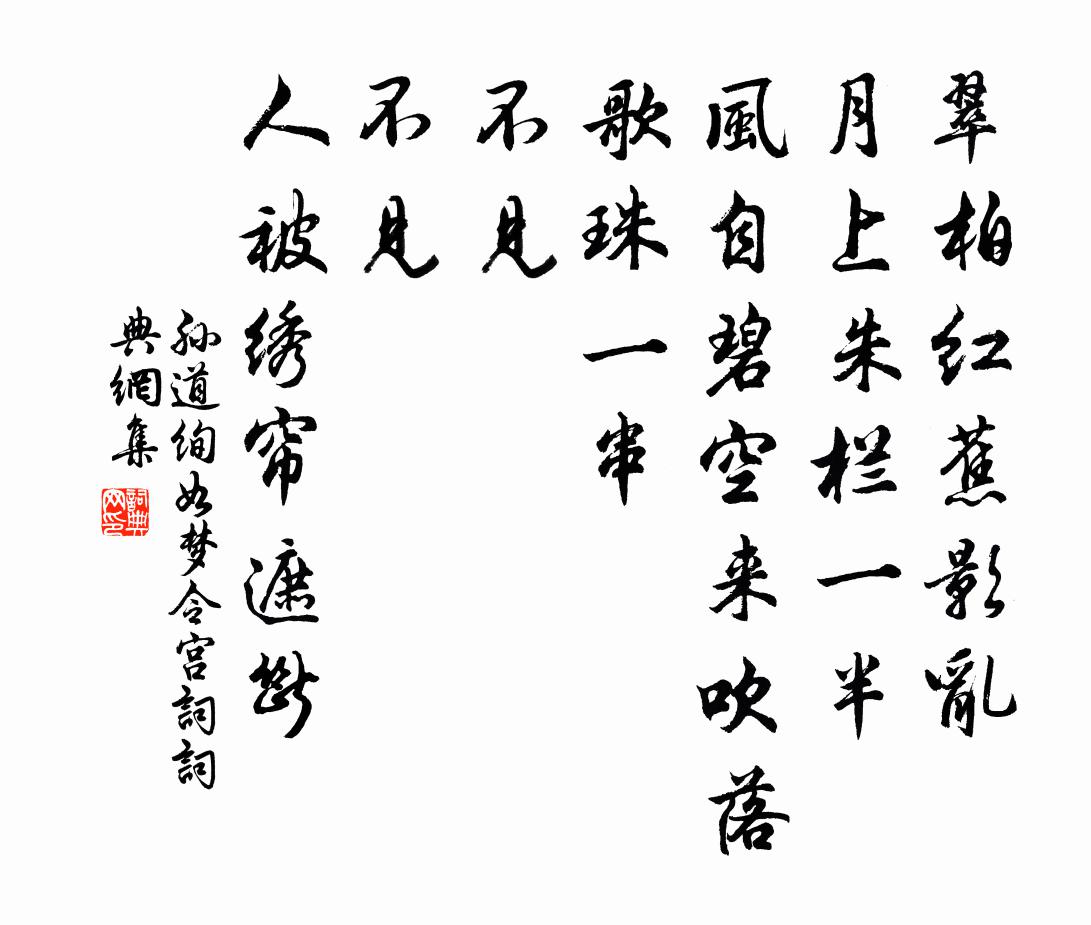 翠柏红蕉影亂
月上朱栏一半
風自碧空来吹落
歌珠一串
不見
不見
人被绣帘遮斷
孙道绚如梦令宫詞詞
典網集
詞典网印